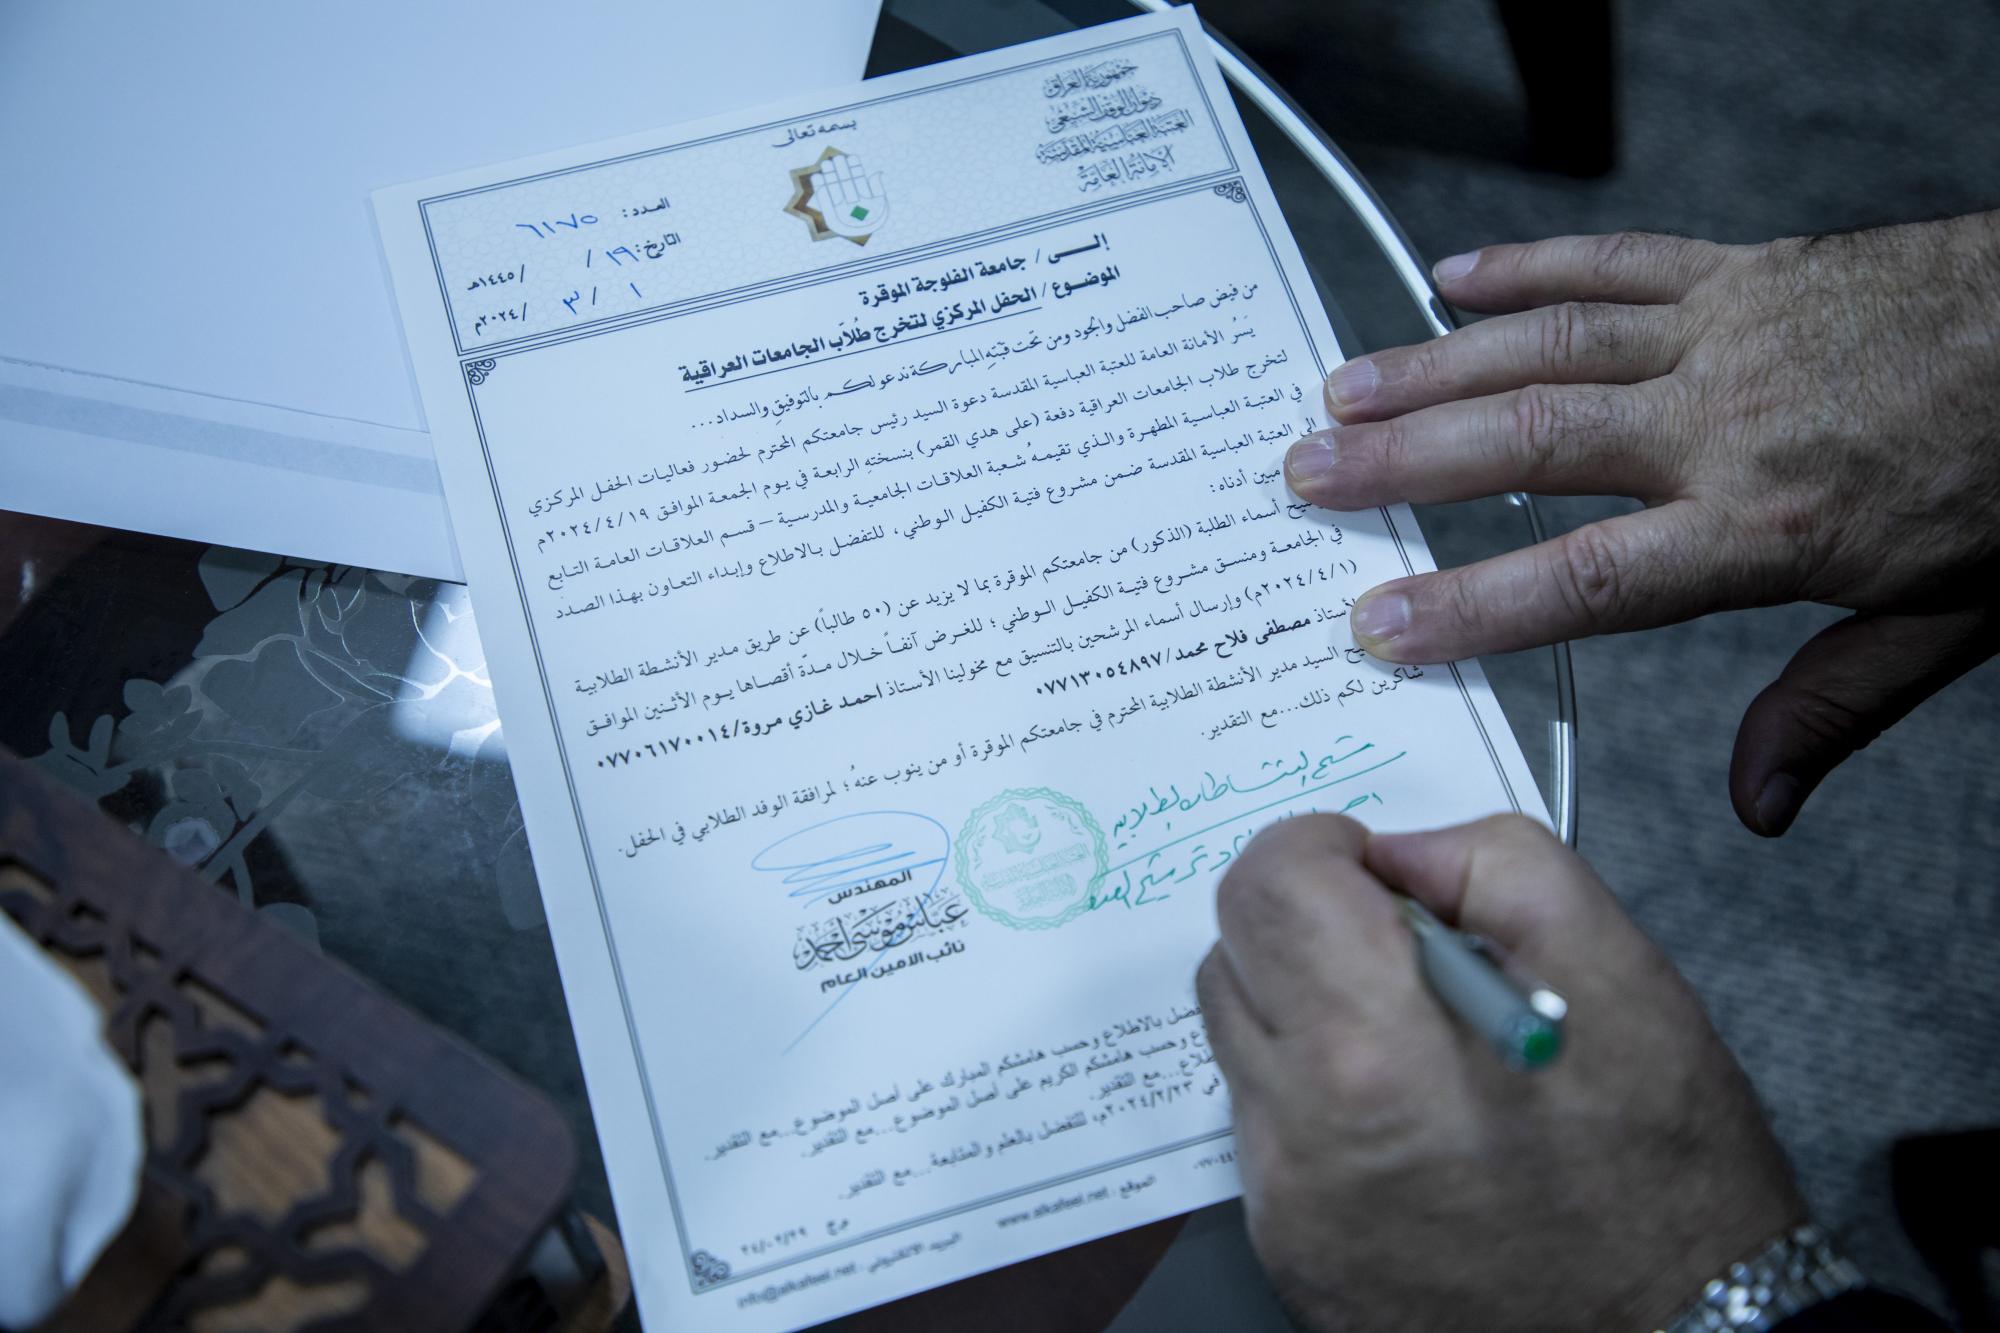 جمهورية العراق
ديوان الوقف الشيعي
العتبة العباسية المقدسة
الامانة العامة
بسمه تعالى
العدد: ٦١٧٥
التاريخ: ١٩ / / ١٤٤٥هـ
١ / ٣ / ٢٠٢٤م
إلـــى / جامعة الفلوجة الموقرة
الموضـــوع / الحفل المركزي لتخرج طُلاّب الجامعات العراقية
من فيض صاحب الفضل والجود ومن تحت قبّتهِ المباركة ندعو لكم بالتوفيق والسداد...
يَسرُ الأمانة العامة للعتبة العباسية المقدسة دعوة السيد رئيس جامعتكم المحترم لحضور فعاليات الحفل المركزي
لتخرج طلاب الجامعات العراقية دفعة (على هدي القمر) بنسختهِ الرابعة في يوم الجمعة الموافق ٢٠٢٤/٤/١٩م
في العتبة العباسية المطهرة والذي تقيمهُ شعبة العلاقات الجامعية والمدرسية – قسم العلاقات العامة التابع
إلى العتبة العباسية المقدسة ضمن مشروع فتية الكفيل الوطني، للتفضل بالاطلاع وإبداء التعاون بهذا الصدد
مبين أدناه:
أسماء الطلبة (الذكور) من جامعتكم الموقرة بما لا يزيد عن (٥٠ طالباً) عن طريق مدير الأنشطة الطلابية
في الجامعة ومنسق مشروع فتية الكفيل الوطني؛ للغرض آنفاً خلال مدّة أقصاها يوم الأثنين الموافق
(٢٠٢٤/٤/١م) وإرسال أسماء المرشحين بالتنسيق مع مخولينا الأستاذ احمد غازي مروة/٠٧٧٠٦١٧٠٠١٤
مصطفى فلاح محمد/٠٧٧١٣٠٥٤٨٩٧
السيد مدير الأنشطة الطلابية المحترم في جامعتكم الموقرة أو من ينوب عنهُ؛ لمرافقة الوفد الطلابي في الحفل.
شاكرين لكم ذلك...مع التقدير.
المهندس
عباس موسى احمد
نائب الامين العام
بالاطلاع وحسب هامشكم المبارك على أصل الموضوع...مع التقدير.
وحسب هامشكم الكريم على أصل الموضوع...مع التقدير.
...مع التقدير.
في ٢٠٢٤/٢/٢٣م، للتفضل بالعلم والمتابعة...مع التقدير.
الموقع : www.alkafeel.net
البريد الالكتروني : info@alkafeel.net